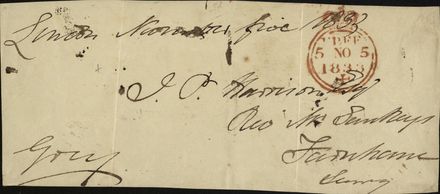 London November five 1833
FREE
5 NO 5
1833
J. P. Harrison Esq
Rev Mr Sankeys
Farnham
Surrey
Grey